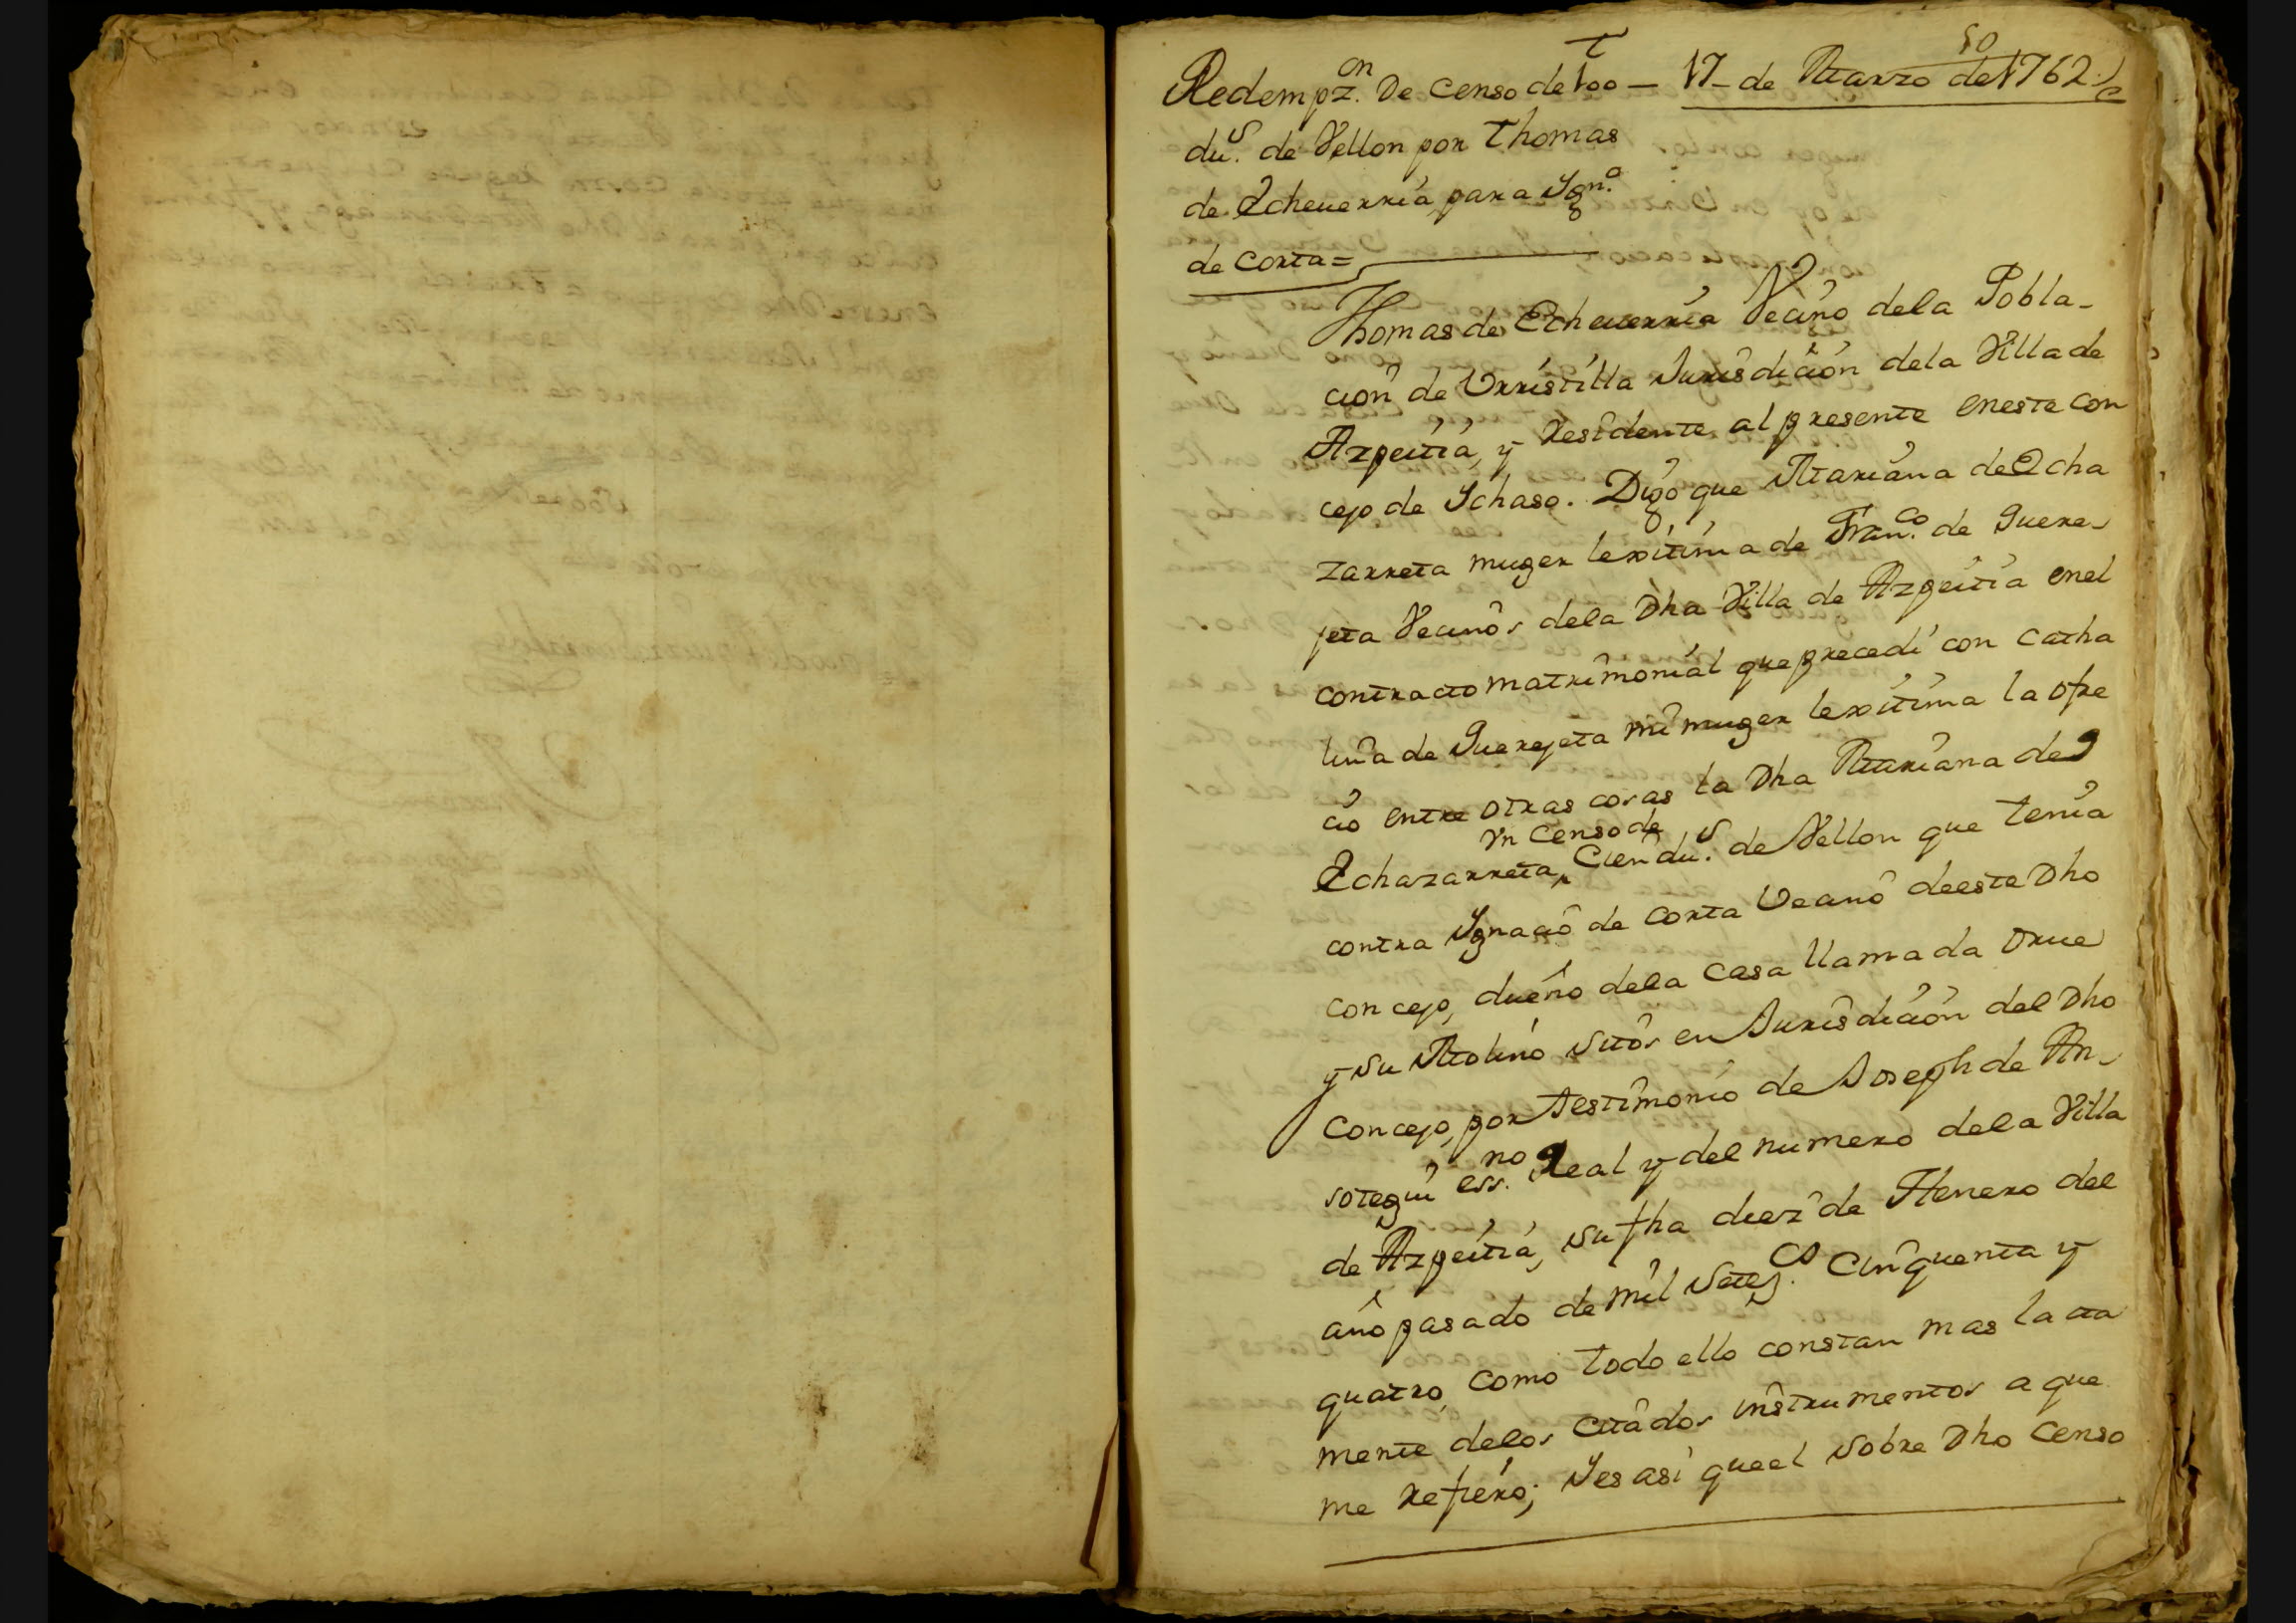 50
Redempz.on De Censo de 100 — 17 de Marzo de 1762
du.s de Vellon por Thomas
de Echeuerria para Ygn.o
de Corta =
Thomas de Echeuerria Vecino dela Pobla-
cion de Vrristilla Jurisdicion dela Villa de
Azpeitia, y Residente al presente eneste con
cejo de Ychaso. Digo que Mariana de Echa
zarreta muger lexitima de Fran.co de Guere-
jeta Vecinos dela Dha Villa de Azpeitia enel
contracto matrimonial que precedi con Catha
lina de Guerejeta mi muger lexitima la ofre
cio entre otras cosas la Dha Mariana de
vn Censo de
Echazarreta, Cien du.s de Vellon que tenia
contra Ygnacio de Corta Vecino deeste Dho
concejo, dueño dela Casa llamada Orue
y su Molino sitos en Jurisdicion del Dho
Concejo, por testimonio de Joseph de An-
sotegui ess.no Real y del numero dela Villa
de Azpeitia, su fha diez de Henero del
año pasado de mil Setez.os Cinquenta y
quatro, como todo ello constan mas la ata
mente delos citados instrumentos a que
me refiero; Yes asi queel sobre Dho Censo